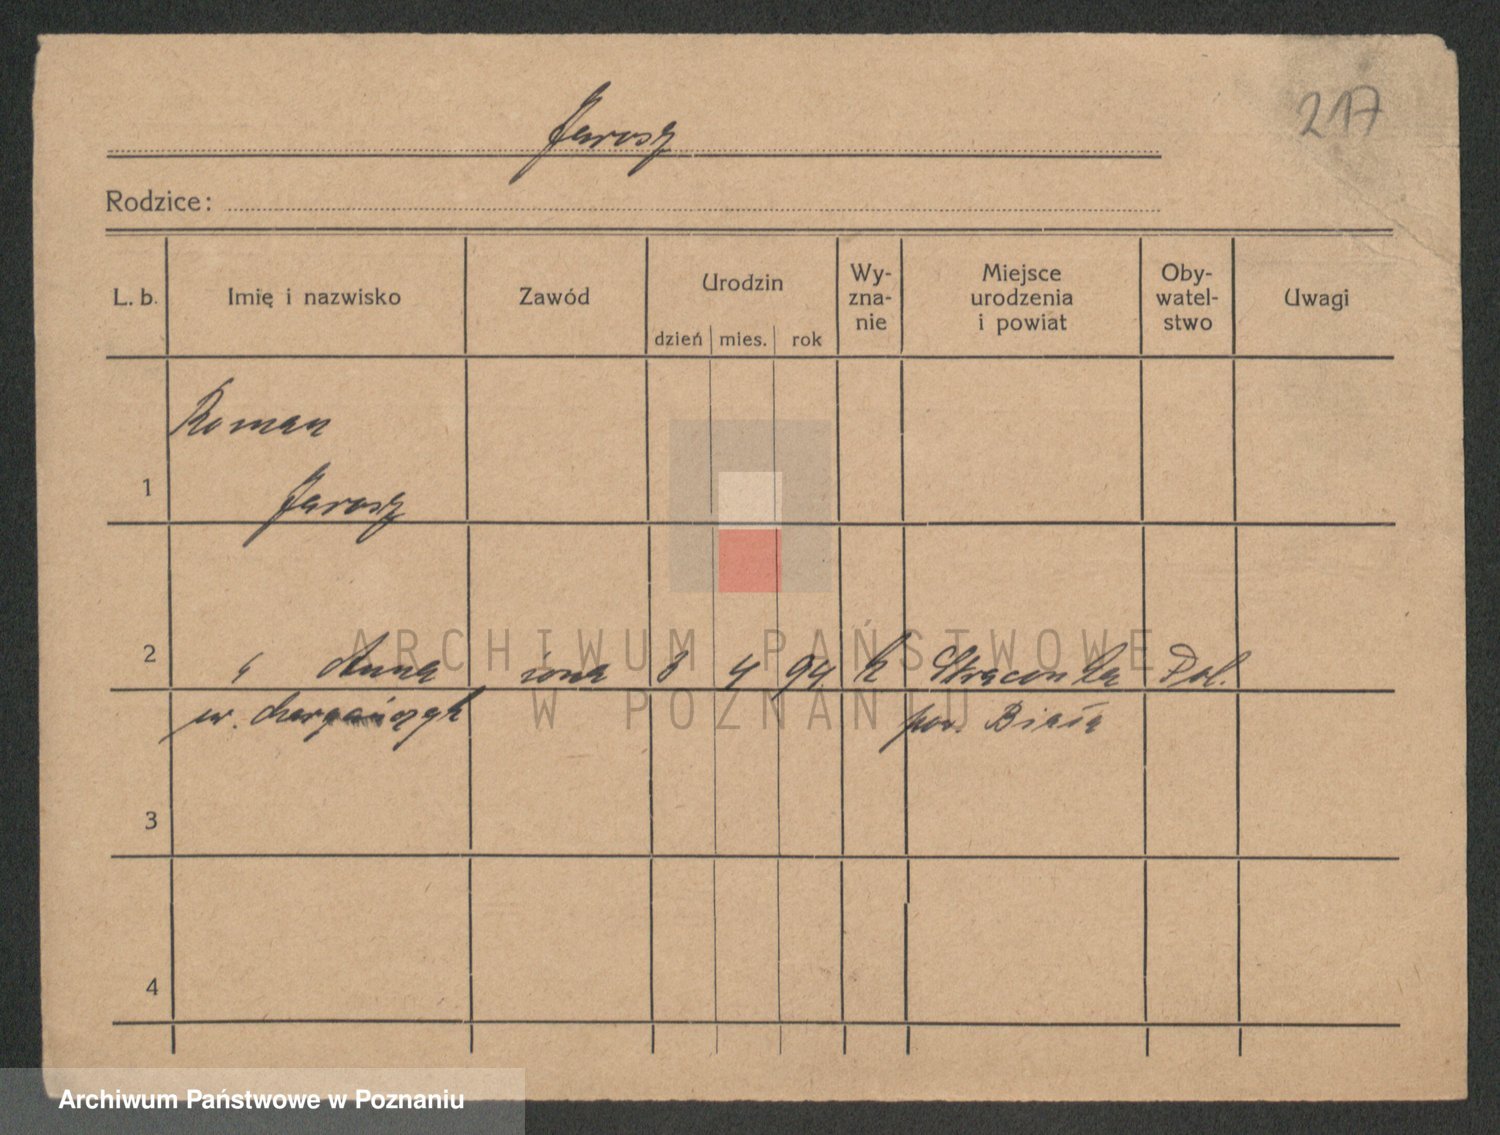 217
Jarosz
Rodzice:
L. b.
Imię i nazwisko
Zawód
Urodzin
dzień mies. rok
Wy-
zna-
nie
Miejsce
urodzenia
i powiat
Oby-
watel-
stwo
Uwagi
Roman
1 Jarosz
2 " Anna żona 3 4 94 k Straconka Pol.
pow. Biała
3
4
ARCHIWUM PAŃSTWOWE
W POZNANIU
Archiwum Państwowe w Poznaniu